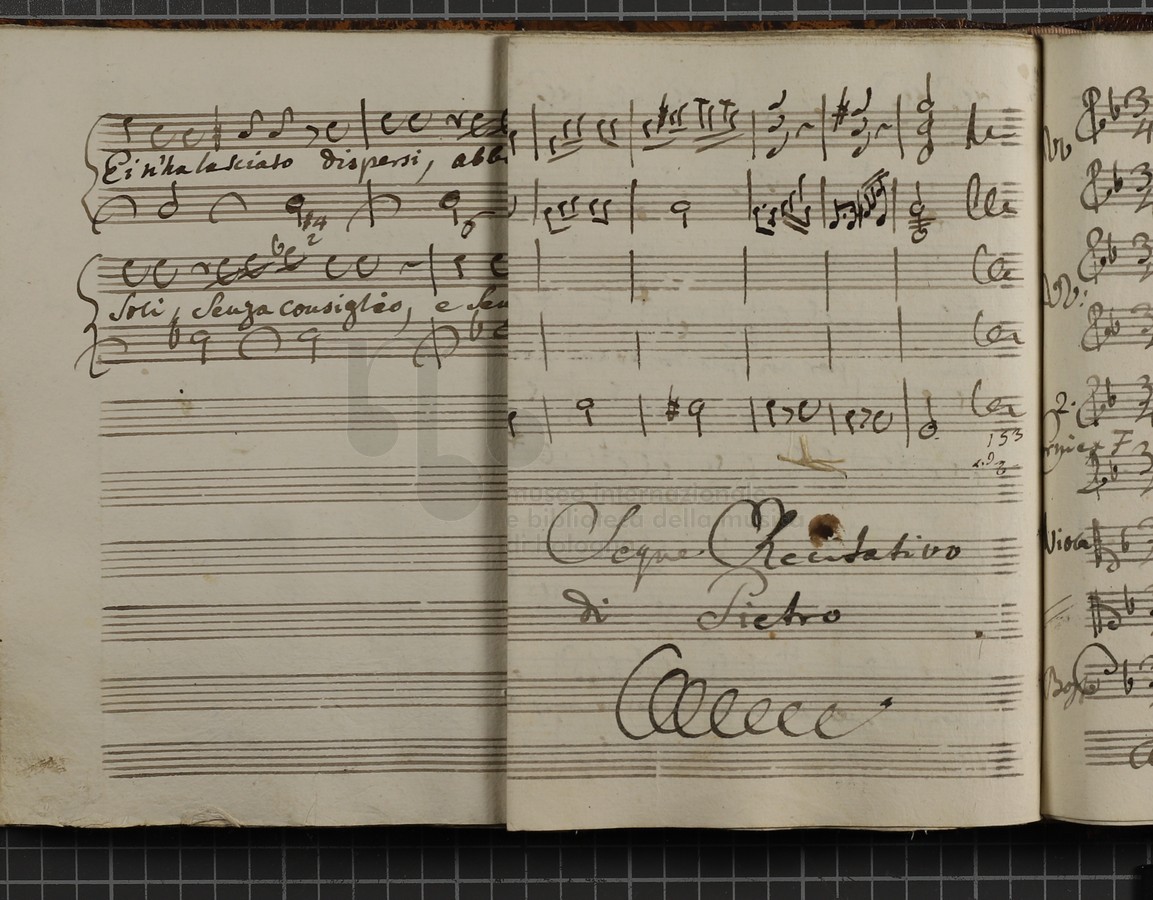 Ei n'ha lasciato dispersi, abb
Soli, Senza consiglio, e sen
Segue Recitativo
di Pietro
153
Viola
museo internazionale
e biblioteca della musica
di bologna